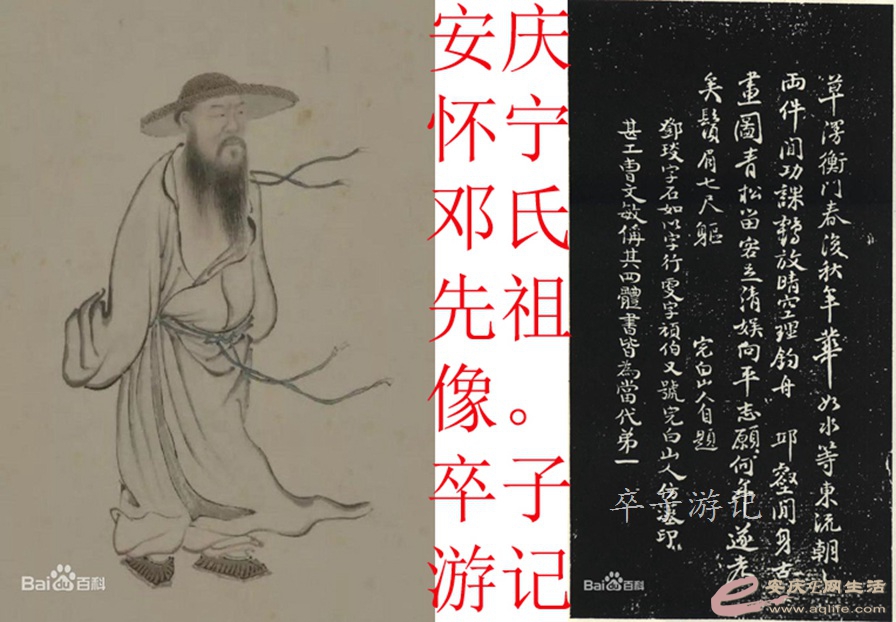 安庆
怀宁
邓氏
先祖
像。
卒子
游记
草澤衡門春復秋年華如水等東流朝
兩件閒功課鶴放晴空理釣舟 邱壑閒身古
畫圖青松留客清娱向平志願何年遂老
矣鬚眉七尺軀
完白山人自題
鄧琰字石如以字行更字頑伯又號完白山人印
甚工曹文敏偁其四體書皆為當代第一
卒子游记
Baidu百科
Baidu百科
安庆e网生活
www.aqlife.com